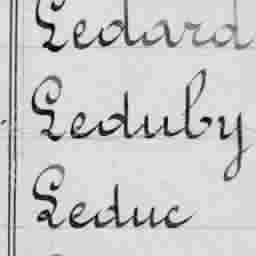 Ledard
Leduby
Leduc